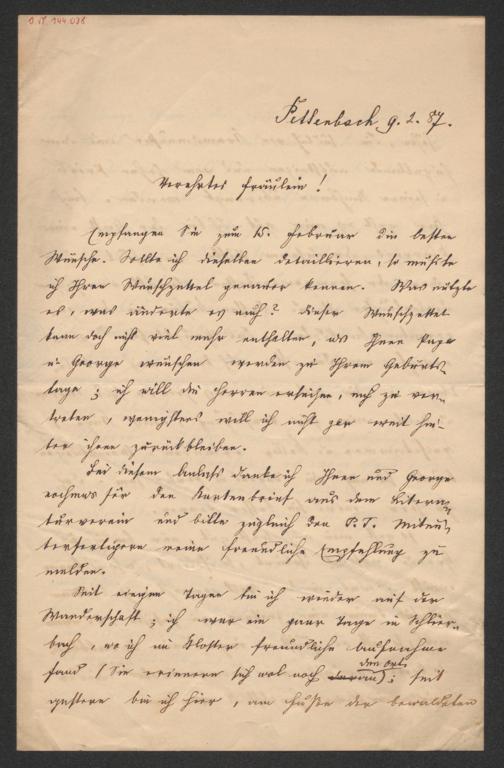 I. N. 144.038
Pettenbach 9. 2. 87.
Verehrtes Fräulein!
Empfangen Sie zum 15. Februar die besten
Wünsche. Sollte ich dieselben detaillieren, so müßte
ich Ihren Wunschzettel genauer kennen. Was nützte
es, was änderte es auch? dieser Wunschzettel
kann doch nicht viel mehr enthalten, als Ihnen Papa
u. George wünschen werden zu Ihrem Geburts-
tage; ich will die Herren ersuchen, mich zu ver-
treten, wenigstens will ich nicht gar weit hin-
ter ihnen zurückbleiben.
Bei diesem Anlaß danke ich Ihnen und George
nochmas für den Kartenbrief aus dem Litera-
turverein und bitte zugleich den P. T. Mitun-
terfertigern meine freundliche Empfehlung zu
melden.
Seit einigen Tagen bin ich wieder auf der
Wanderschaft; ich war ein paar Tage in Schlier-
bach, wo ich im Kloster freundliche Aufnahme
fand (Sie erinnern sich wol noch daran den Ort); seit
gestern bin ich hier, am Fuße der bewaldeten